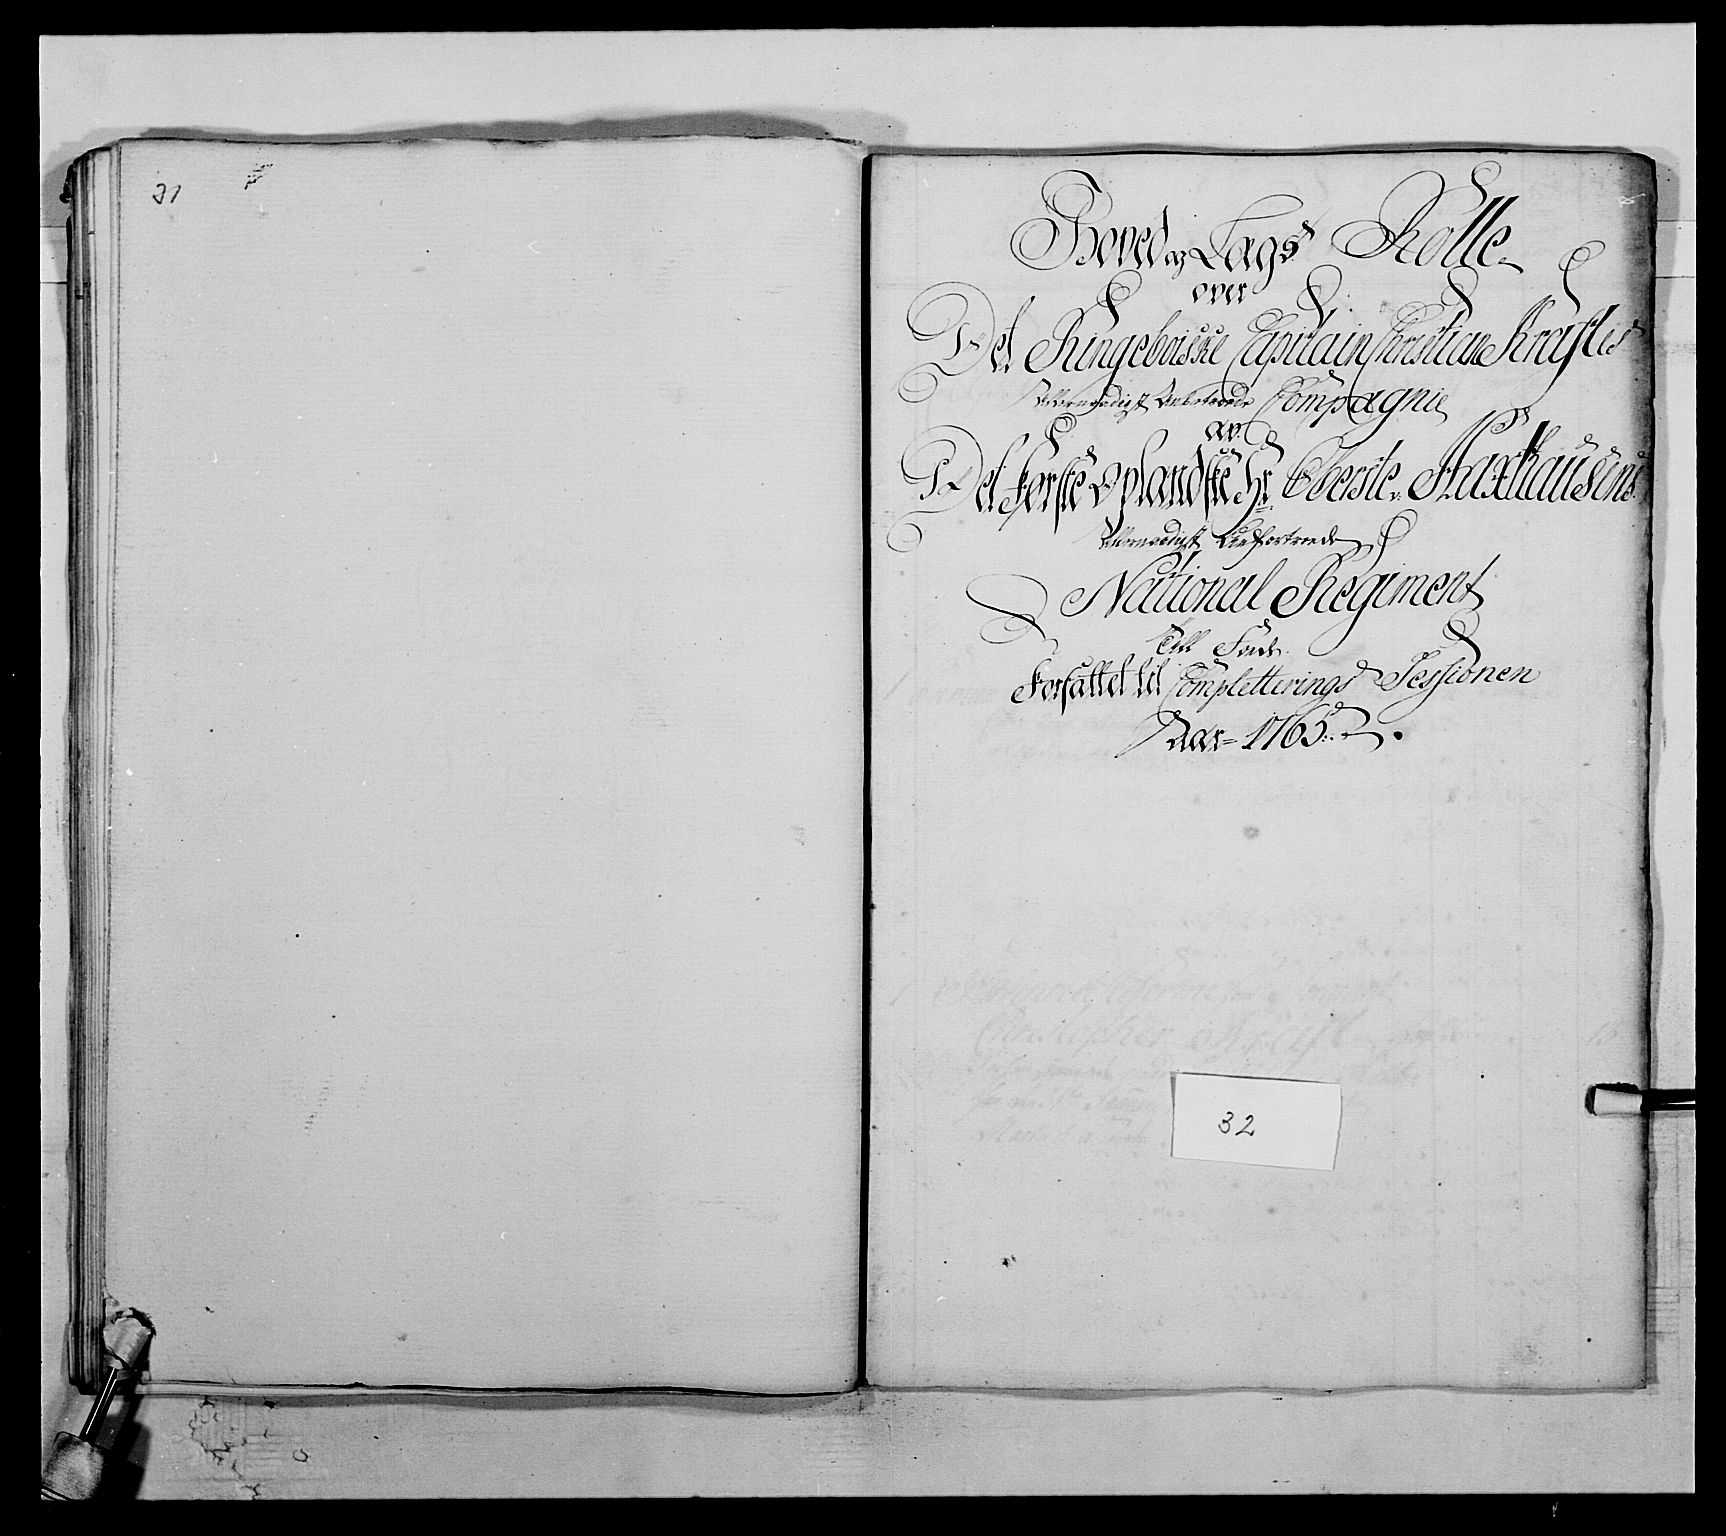 31
Hoved og Lags Rolle
over
Det Ringeboiske Capitain Christian Krafts
Allernaadigst Anbetroede Compagnie
av
Det første Oplandske Hr Oberste v. Haxthausens
Allernaadigst Anfortroede
National Regiment
Till Foeds
Forfattet til Completterings Sessionen
Aar 1765
32